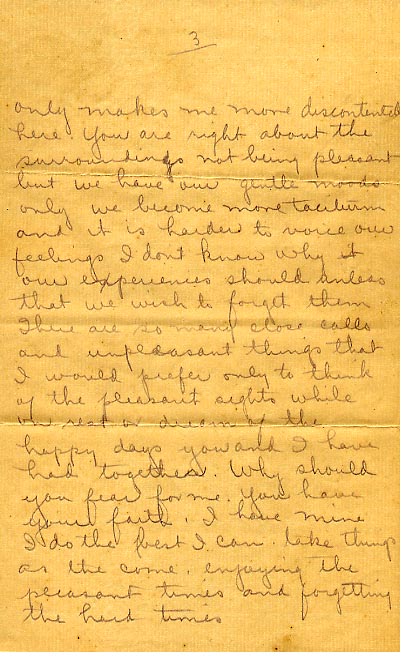 3
only makes me more discontented
here. You are right about the
surroundings not being pleasant
but we have our gentle moods
only we become more taciturn
and it is harder to voice our
feelings I dont know why it
our experiences should unless
that we wish to forget them
There are so many close calls
and unpleasant things that
I would prefer only to think
of the pleasant sights while
on rest or dream of the
happy days you and I have
had together. Why should
you fear for me. You have
your faith. I have mine
I do the best I can. take things
as the come. enjoying the
pleasant times and forgetting
the hard times